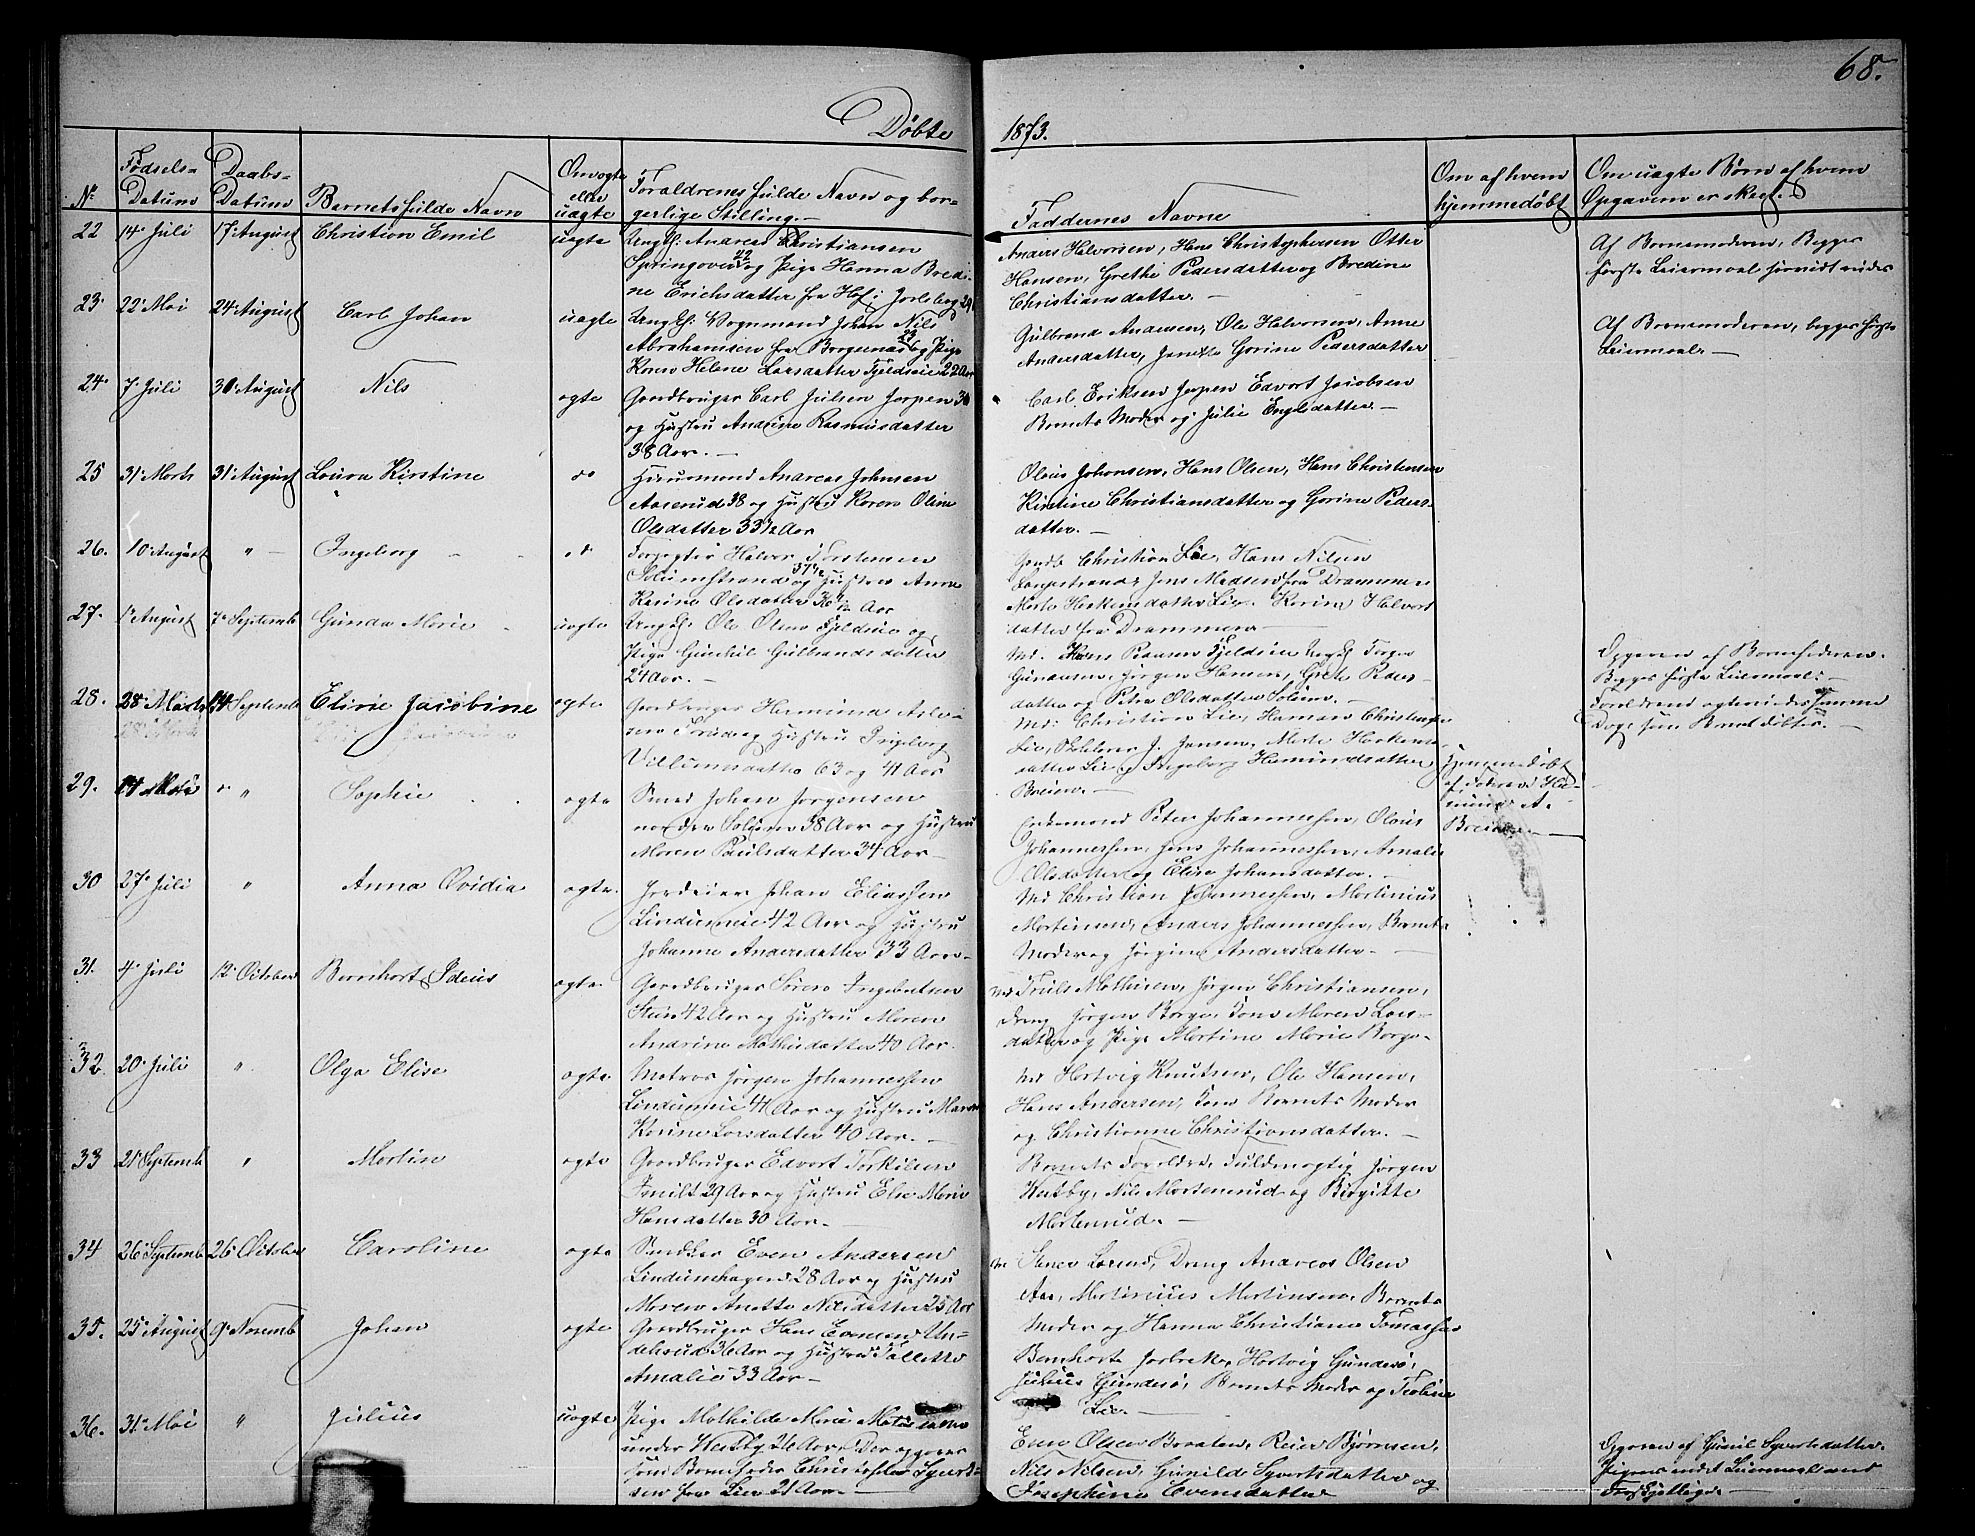 68.
Døbte 1873.
No
Fødsels-
Datum
Daabs-
Datum
Barnets fulde Navn
Om ægte
eller
uægte
Forældrenes fulde Navn og bor-
gerlige Stilling.-
Faddernes Navne
Om af hvem
hjemmedøbt
Om uægte Børn af hvem
Opgaven er skeet.
22 14 Juli 17 August Christian Emil uægte Ungk: Andreas Christiansen
Springoven 22 og Pige Hanna Bredi-
ne Erichsdatter fra Hof i Jarlsberg 24
Anders Halvorsen, Hans Christophersen Otter
Hansen, Grethe Pedersdatter og Bredine
Christiansdatter.-
Af Barnemoderen, Begges
første Leiermaal
23 22 Mai 24 August Carl Johan uægte Ungk: Vognmand Johan Nils
Abrahamsen fra og Pige
Karen Helene Larsdatter Fjeldseie 22 Aar
Gulbrand Andersen, Ole Halvorsen, Anne
Andersdatter, Gorine Pedersdatter
Af Barnemoderen, begges første
Leiermaal.-
24 7 Juli 30 August Nils ægte Gaardbruger Carl Julsen Jerpen 36
og Hustru Andrine Rasmusdatter
38 Aar.-
Carl Eriksen Jerpen Edvort Jacobsen
Barnets Moder og Julie Engelsdatter.-
25 31 Marts 31 August Laura Kirstine do Huusmand Andreas Johnsen
Aaserud 38 og Hustru Karen Oline
Olsdatter 33½ Aar
Olaus Johansen, Hans Olsen, Hans Christensen
Kirstine Christiansdatter og Gorine Peders-
datter.-
26. 10 August " - Ingeborg do Halvor Torstensen
Solumstrand 37½ og Hustru Anne
Karine Olsdatter 36½ Aar
Christian Lie, Hans Nilsen
Langestrand, Jens Madsen fra Drammen
Marte Haakensdatter Lie. Karine Halvors
datter fra Drammen
27. 1 August 7 Septemb Gunda Marie uægte Ungk: Ole Olsen Fjeldseie og
Pige Gunhil Gulbrandsdatter
24 Aar.-
Hans Pedersen Fjeldseie Ungk:
Gundersen, Jørgen Hansen, Grete Peders-
datter og Petra Olsdatter Solum.-
Opgaven af Barnefaderen.
Begges første Leiermaal.-
Forældrene ægteviedes samme
Dag som Barnet døbtes.-
28. 28 Marts 14 Septemb Eline Jacobine ægte Gaardbruger Hermund Asle-
sen og Hustru Ingeborg
Villumsdatter 63 og 41 Aar
Md: Christian Lie, Haman Christensen
Lie, Skolelærer J. Jansen, Marte Haakens-
datter Lie og Ingeborg Hermundsdatter
Breien.-
Hjemmedøbt
af Faderen Her-
mund A.
Breien.-
29. 14 Mai " Sophie ægte Smed Johan Jørgensen
nordre Solum 38 Aar og Hustru
Maren Paulsdatter 34 Aar-
Enkemand Peter Johannessen, Olaus
Johannessen, Jens Johannessen, Amalie
Olsdatter og Elise Johansdatter.-
30 27 Juli " Anna Ovidia ægte Jordeier Johan Eliassen
Lindumeie 42 Aar og Hustru
Johanne Andersdatter 33 Aar-
Md Christian Johannessen, Martinius
Martinsen, Anders Johannessen, Barnets
Moder og Jørgine Andersdatter.-
31. 4 Juli 12 October Bernhart Ideus ægte Gaardbruger Søren Ingebretsen
42 Aar og Hustru Maren
Andrine Mathisdatter 40 Aar.
Md Truls Mathisen, Jørgen Christiansen,
Dreng Jørgen Borge, Kone Maren Lars-
datter og Pige Martine Marie Borge-
32. 20 Juli " Olga Elise ægte Matros Jørgen Johannessen
Lindumeie 41 Aar og Hustru Maren
Karine Larsdatter 40 Aar.-
Md Hartvig Knutsen, Ole Hansen,
Hans Andersen, Kone Barnets Moder
og Christianne Christiansdatter.-
33 21 Septemb " Martin ægte Gaardbruger Edvort Torkilsen
29 Aar og Hustru Else Marie
Hansdatter 30 Aar.-
Barnets Forældre, Fuldmægtig Jørgen
Nils Mortensrud og Birgitte
Mortensrud.-
34 26 Septemb 26 October Caroline ægte Snedker Even Andersen
Lindumhagen 28 Aar og Hustru
Maren Anette Nilsdatter 25 Aar
Dreng Andreas Olsen
Aas, Martinius Martinsen, Barnets
Moder og Hanna Christiane
35. 25 August 9 Novemb Johan ægte Gaardbruger Hans Evensen Un-
delsrud 36 Aar og Hustru
Amalie 33 Aar-
Bernhart Hartvig Gundesø,
Julius Gundesø, Barnets Moder og
Lie.-
36. 31 Mai " Julius uægte Pige Mathilde Marie
under Vestby 26 Aar. Der opgives
som Barnefader Christofer Syvert-
sen fra Lier 21 Aar.-
Even Olsen Braaten, Reier Bjørnsen,
Nils Nilsen, Gunilde Syvertsdatter og
Josephine Evensdatter
Opgaven af Gunil Syvertsdatter.
Pigens andet Leiermaal med
Forskjellige.-